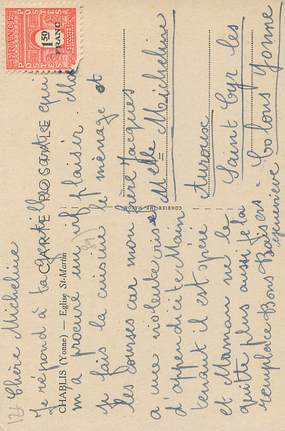 Chère Micheline
Je répond à ta gentille carte qui
m'a procuré un vif plaisir. Moi
je fais la cuisine le ménage et
les courses car mon frère Jacques
a une violente crise
d'appendicite Main
tenant il est opéré
et Maman ne le
quitte plus aussi je la
remplace Bons Baisers
Geneviève
Melle Micheline
Auroux
Saint Cyr les
Colons Yonne
CARTE POSTALE
CHABLIS (Yonne) — Eglise St-Martin
FRANCE
POSTES
1F50
FRANC